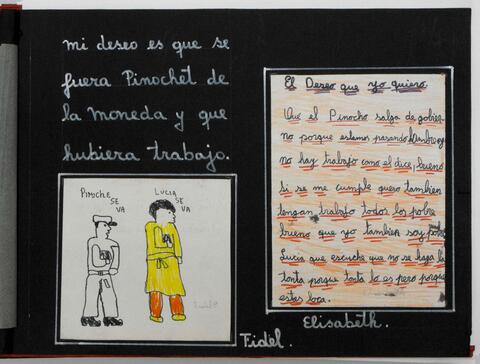 mi deseo es que se
fuera Pinochet de
la moneda y que
hubiera trabajo.
PINOCHE
SE
VA
LUCIA
SE
VA
Fidel.
El Deseo que yo quiero
Que el Pinocho salga de gobier
no porque estamos pasando hambre y
no hay trabajo como el dice, bueno
si se me cumple quero tambien
tengan trabajo todos los pobre
bueno que yo tambien soy pobre
Lucia que escuche que no se haga la
tonta porque tonta lo es pero porque
estas loca.
Elisabeth.